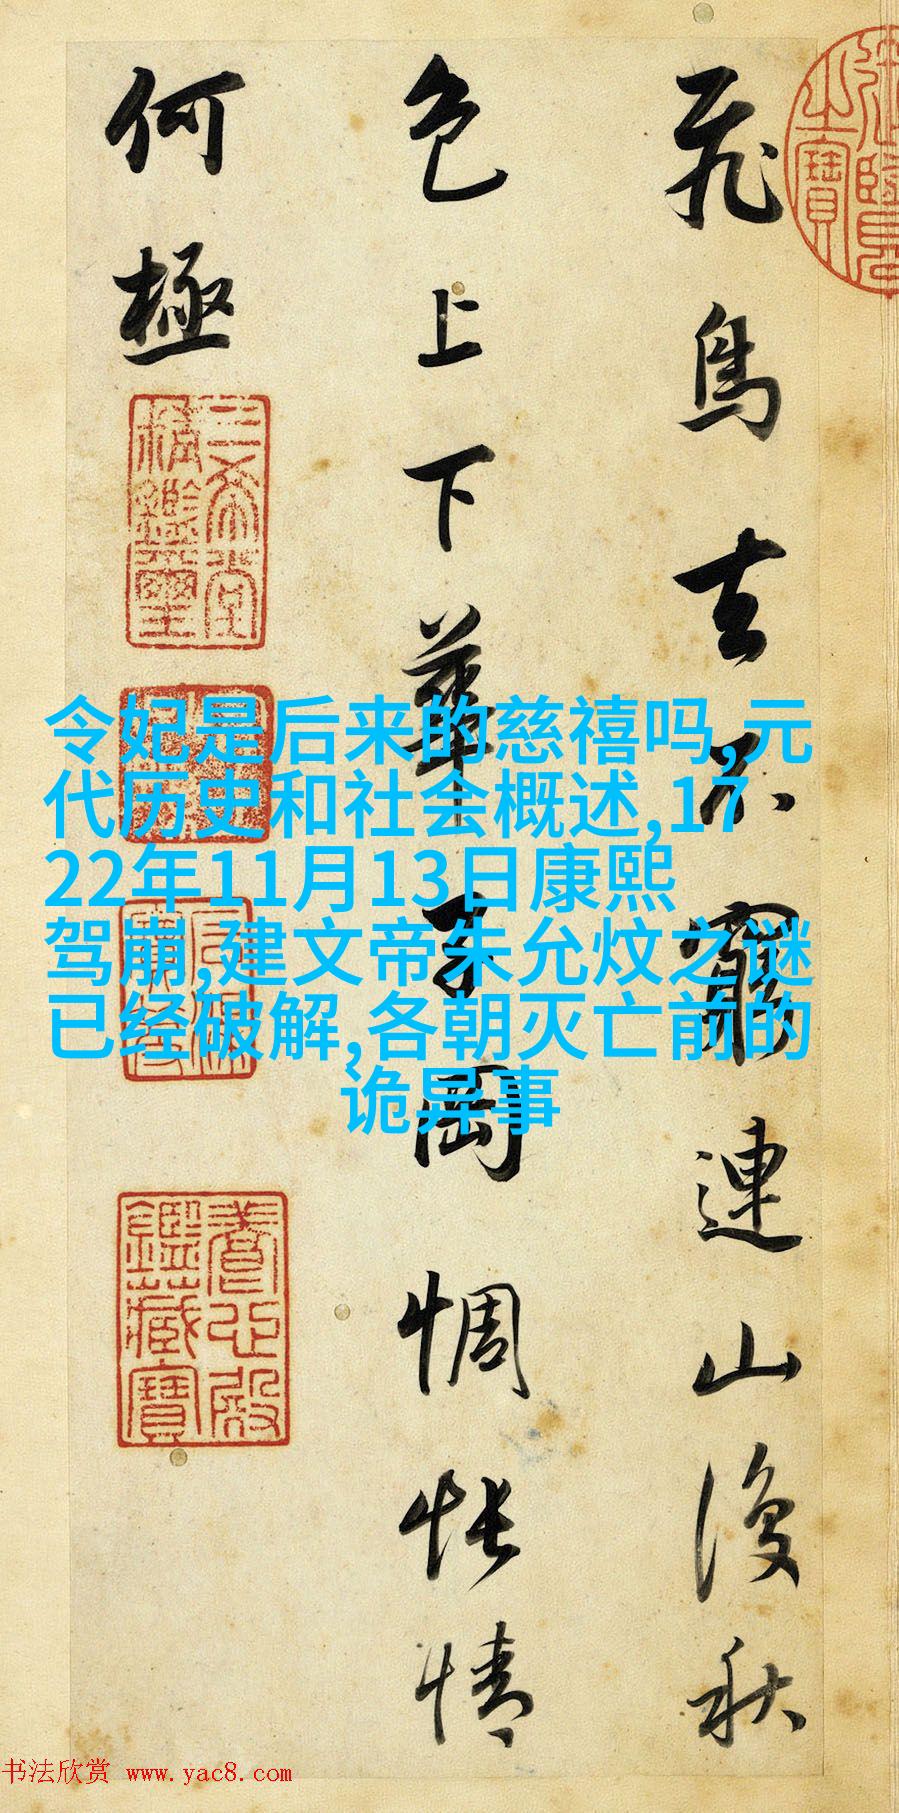 飛鳥去不窮連山復秋
色上下華子岡惆悵情
何極
三希堂精鑑璽
養心殿鑑藏寶
令妃是后来的慈禧吗,元
代历史和社会概述,17
22年11月13日康熙
驾崩,建文帝朱允炆之谜
已经破解,各朝灭亡前的
诡异事
书法欣赏 www.yac8.com